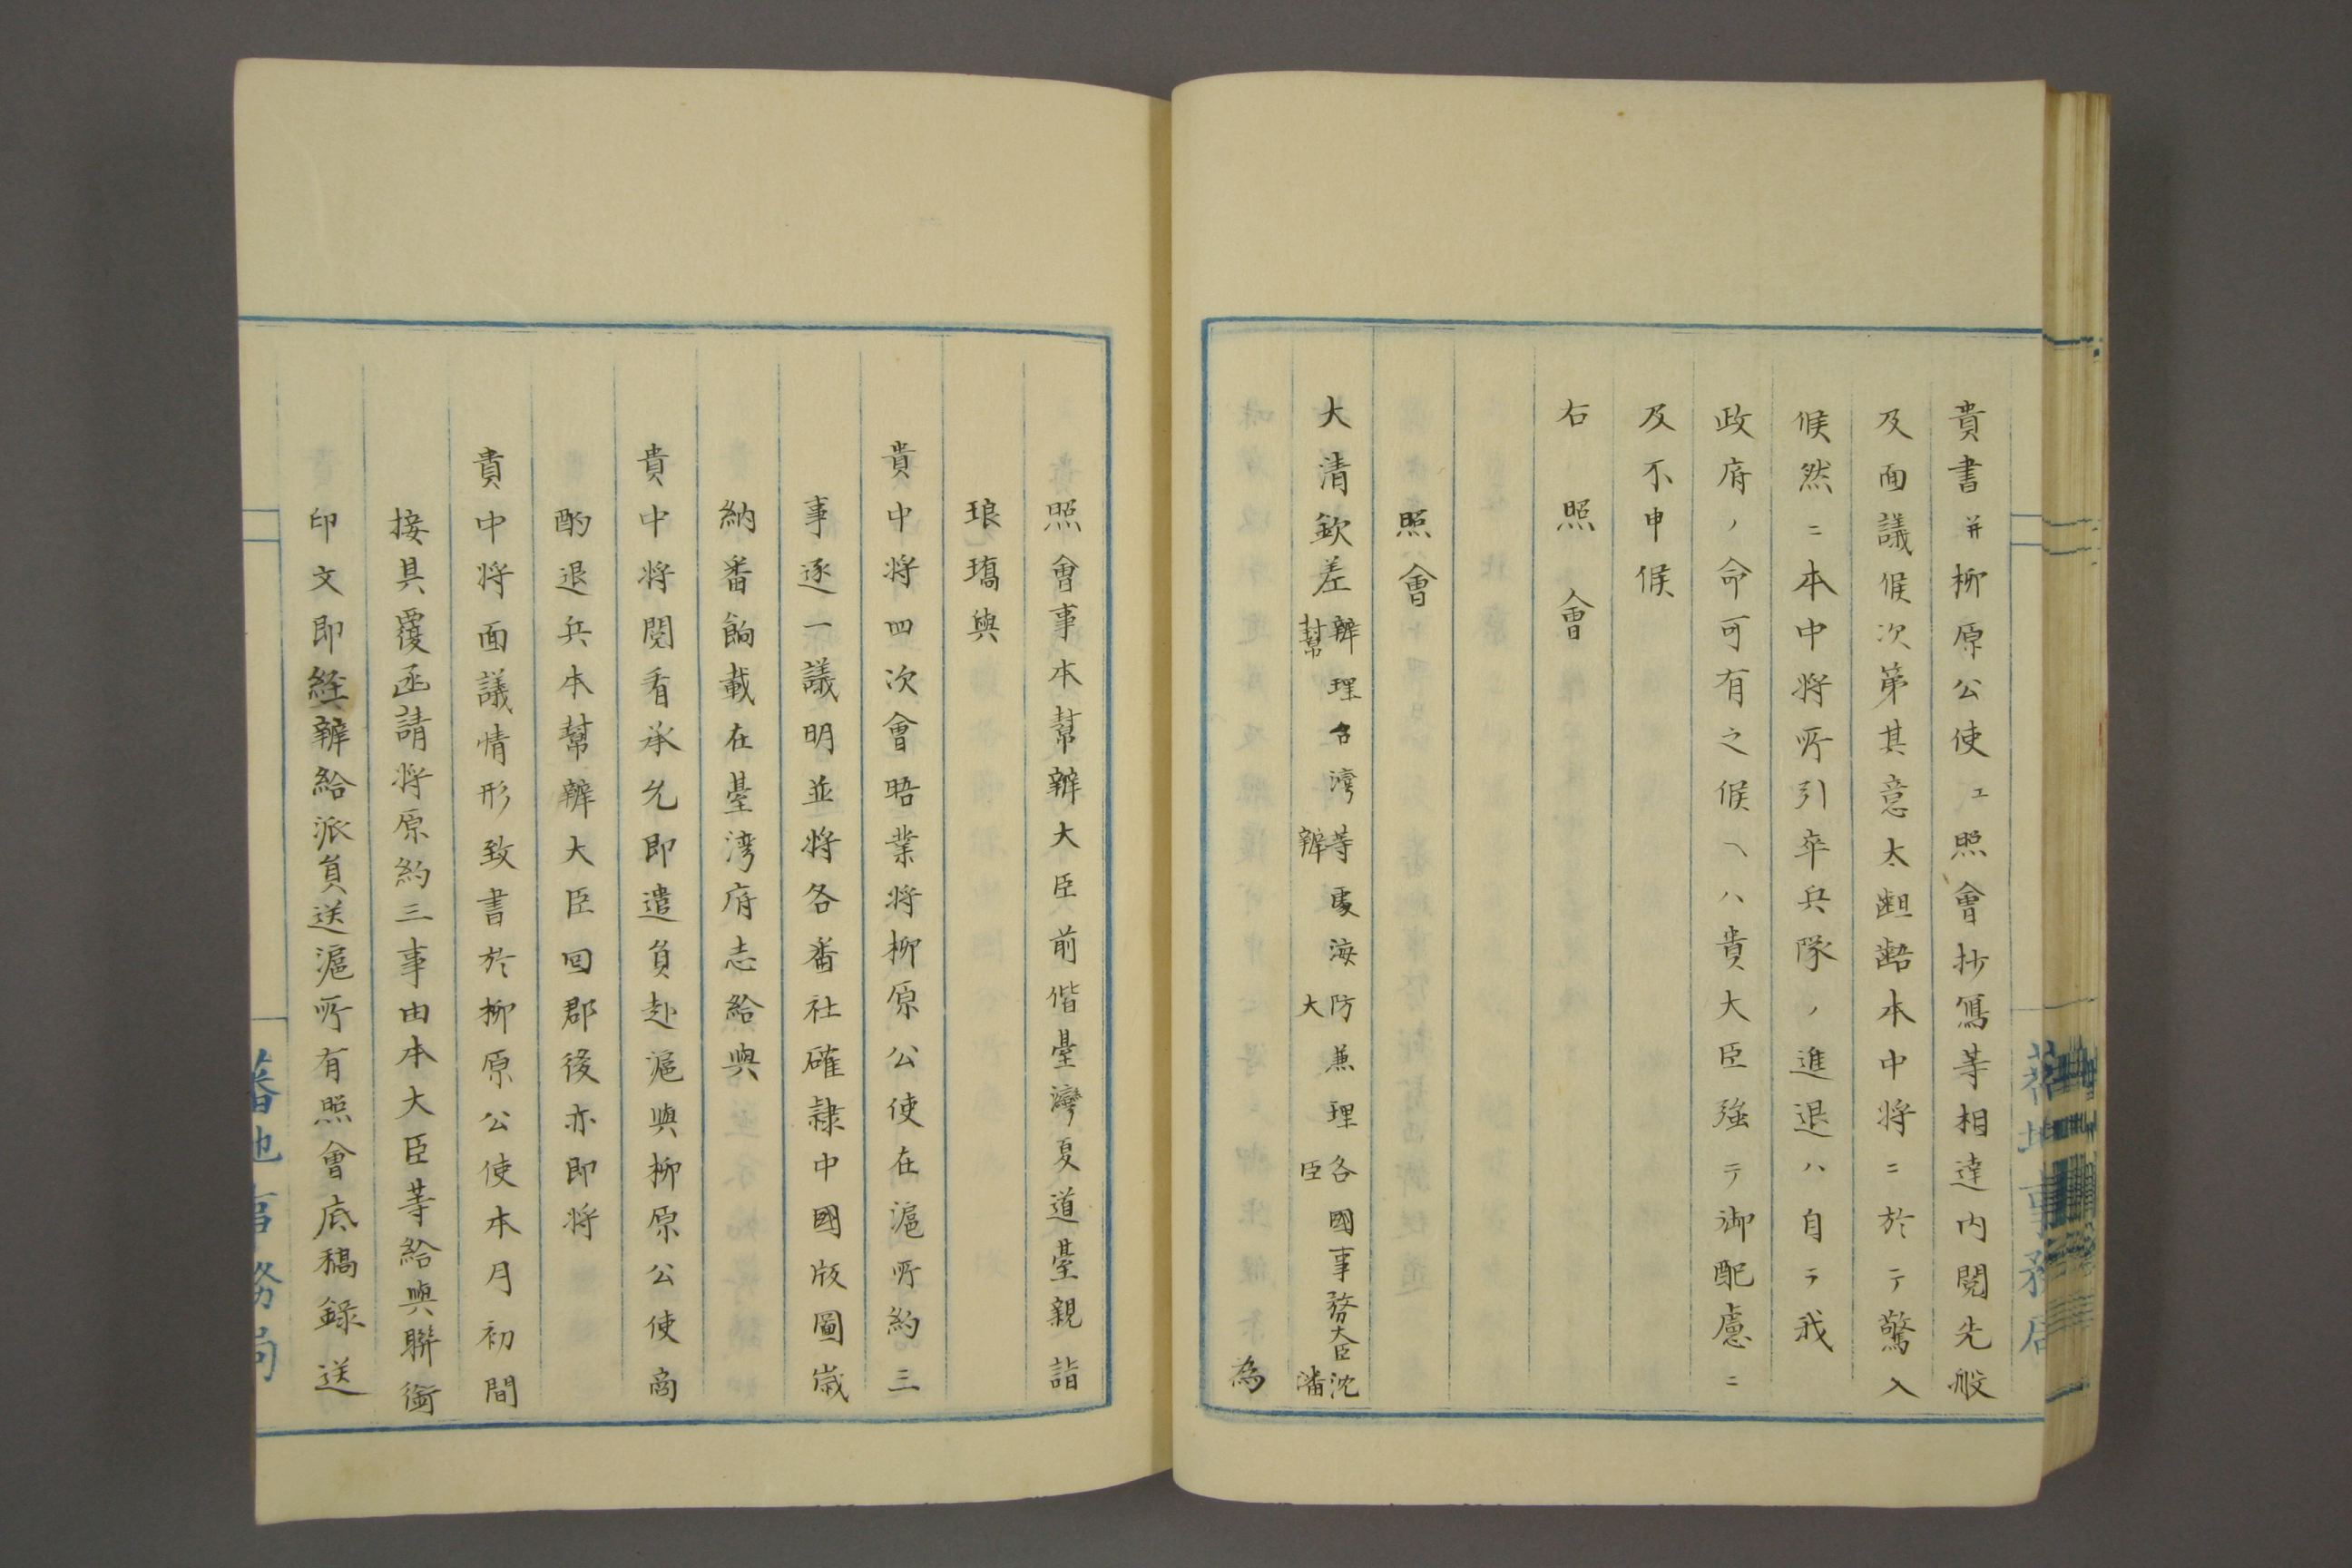 貴書并柳原公使ヱ照會抄寫等相達内閲先般
及面議候次第其意太齟齬本中将ニ於テ驚入
候然ニ本中将所引卒兵隊ノ進退ハ自ラ我
政府ノ命可有之候ヘハ貴大臣強テ御配慮ニ
及不申候
右照會
照會
大清欽差辦理台湾等處海防兼理各國事務大臣沈
幫辦大臣潘
為
照會事本幫辦大臣前偕臺灣夏道臺親詣
琅𤩝與
貴中将四次會晤業将柳原公使在滬所約三
事逐一議明並将各番社確隷中國版圖歳
納番餉載在臺湾府志給與
貴中将閲看承允即遣負赴滬與柳原公使商
酌退兵本幫辦大臣回郡後亦即将
貴中将面議情形致書於柳原公使本月初間
接具覆函請将原約三事由本大臣等給與聯銜
印文即経辦給派負送滬所有照會底稿録送
蕃地事務局
蕃地事務局